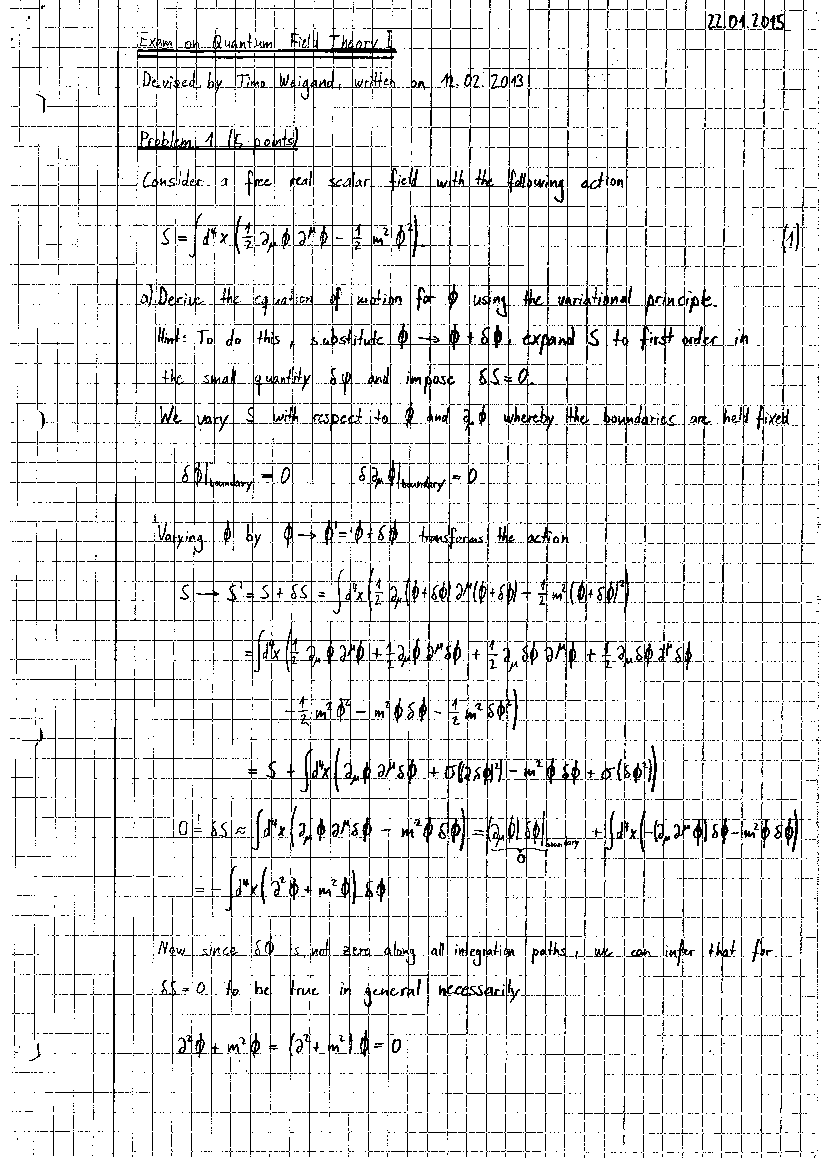 22.01.2015
Exam on Quantum Field Theory I
Devised by Timo Weigand, written on 12.02.2013
Problem 1 (15 points)
Consider a free real scalar field with the following action
S = ∫d⁴x (½ ∂_μ ϕ ∂^μ ϕ − ½ m² ϕ²). (1)
a) Derive the equation of motion for ϕ using the variational principle.
Hint: To do this, substitute ϕ → ϕ + δϕ, expand S to first order in
the small quantity δφ and impose δS = 0.
We vary S with respect to ϕ and ∂_μ ϕ whereby the boundaries are held fixed
δϕ|_boundary = 0 δ∂_μ ϕ|_boundary = 0
Varying ϕ by ϕ → ϕ' = ϕ + δϕ transforms the action
S → S' = S + δS = ∫d⁴x (½ ∂_μ(ϕ+δϕ) ∂^μ(ϕ+δϕ) − ½ m² (ϕ+δϕ)²)
= ∫d⁴x (½ ∂_μ ϕ ∂^μ ϕ + ½ ∂_μ ϕ ∂^μ δϕ + ½ ∂_μ δϕ ∂^μ ϕ + ½ ∂_μ δϕ ∂^μ δϕ
− ½ m² ϕ² − m² ϕ δϕ − ½ m² δϕ²)
= S + ∫d⁴x (∂_μ ϕ ∂^μ δϕ + σ((∂δϕ)²) − m² ϕ δϕ + σ(δϕ²))
0 = δS ≈ ∫d⁴x (∂_μ ϕ ∂^μ δϕ − m² ϕ δϕ) = (∂_μ ϕ) δϕ|_boundary + ∫d⁴x (−(∂_μ ∂^μ ϕ) δϕ − m² ϕ δϕ)
0
= −∫d⁴x (∂² ϕ + m² ϕ) δϕ
Now since δϕ is not zero along all integration paths, we can infer that for
δS = 0 to be true in general necessarily
∂² ϕ + m² ϕ = (∂² + m²) ϕ = 0